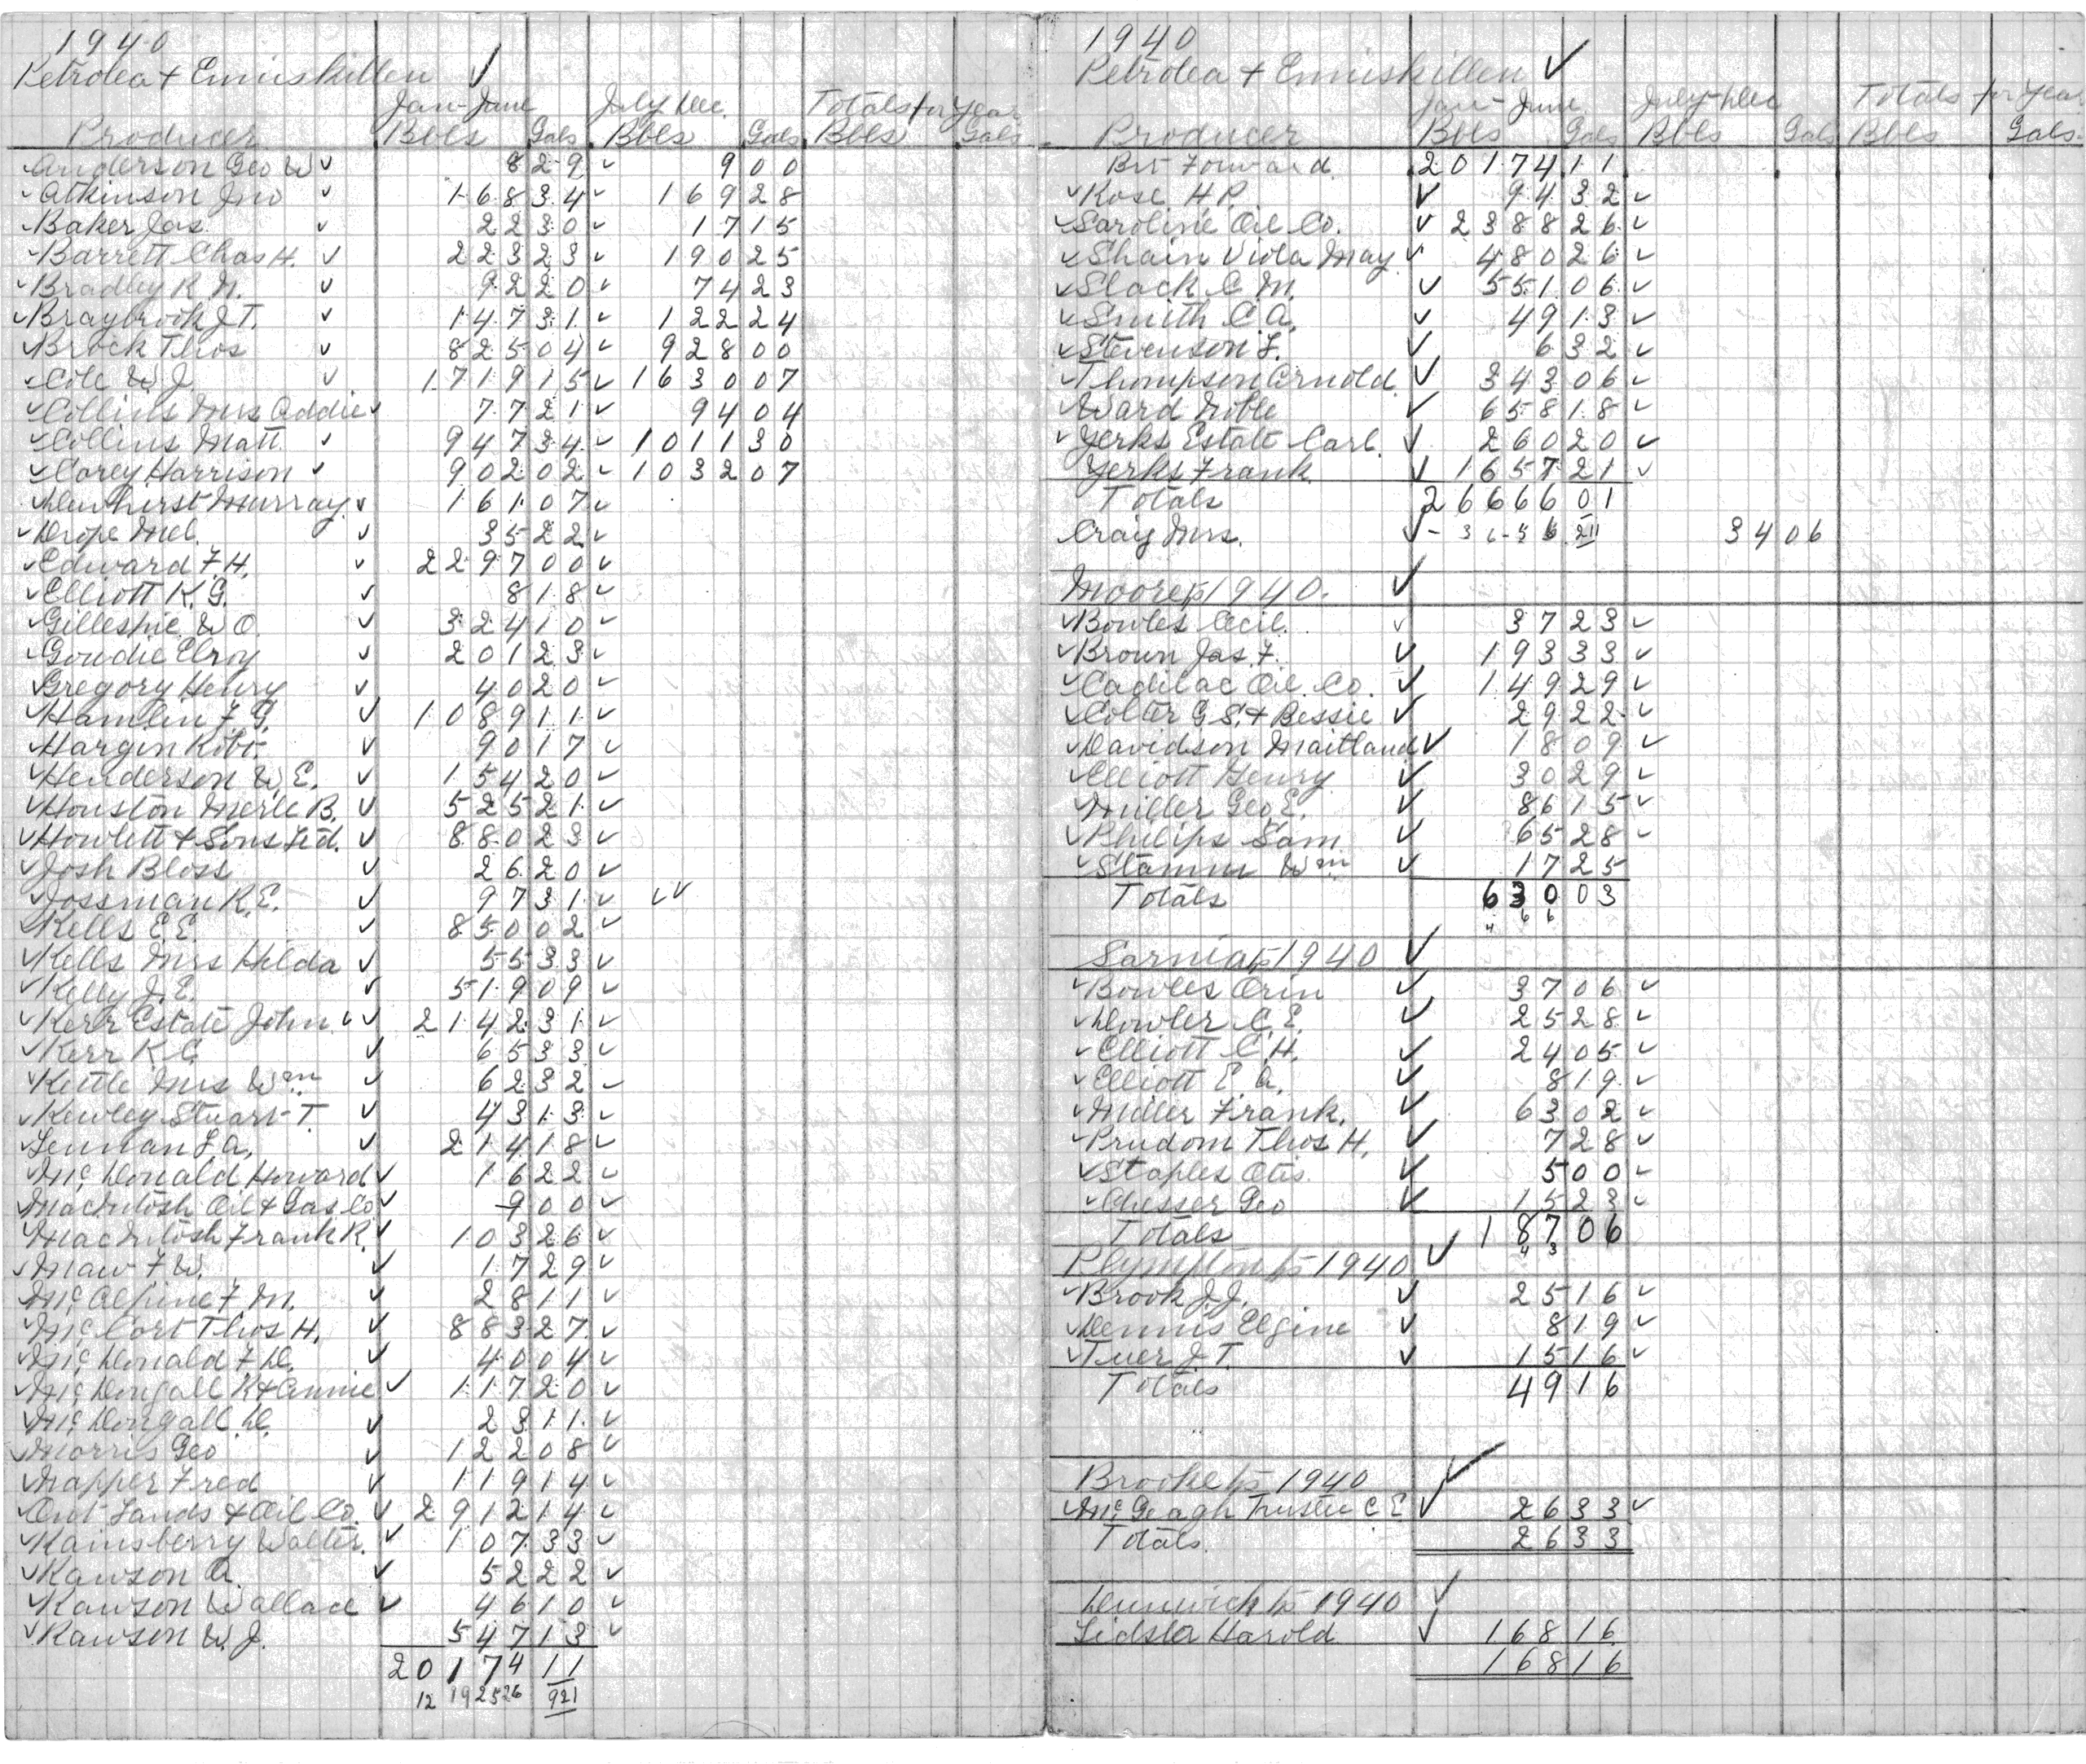 1940
Petrolea + Enniskillen ✓
Jan-June July Dec. Totals for Year
Producer Bbls Gals Bbls Gals Bbls Gals
Anderson Geo W 8 29 9 00
Atkinson Jno 168 34 169 28
Baker Jas 22 30 17 15
Barrett Chas H. 223 23 190 25
Bradley R. N. 92 20 74 23
Braybrook J T. 147 31 122 24
Brock Thos 825 04 928 00
Cole W J. 1719 15 1630 07
Collins Mrs Addie 77 21 94 04
Collins Matt. 947 34 1011 30
Corey Harrison 902 02 1032 07
Dewhirst Murray 161 07
Drope Mel. 35 22
Edward F. H. 2297 00
Elliott K. G. 8 18
Gillespie W O. 324 10
Goudie Elroy 201 23
Gregory Henry 40 20
Hamlin F. G. 1089 11
Hargin Robt. 90 17
Henderson W, E. 154 20
Houston Merle B. 525 21
Howlett + Sons Ltd. 880 23
Josh Bloss 26 20
Jossman R. E. 97 31
Kells E E. 850 02
Kells Mrs Hilda 55 33
Kelly J. E. 519 09
Kerr Estate John 2142 31
Kerr K. C 65 33
Kettle Mrs Wm 62 32
Kewley Stuart T. 43 13
Lenman L. A, 214 18
Mc Donald Howard 16 22
MacIntosh Oil + Gas Co 9 00
MacIntosh Frank R. 103 26
Maw F W. 17 29
Mc Alpine F. M. 28 11
Mc Cort Thos H. 883 27
Mc Donald F. D. 40 04
Mc Dougall K + Annie 117 20
Mc Dougall D. 23 11
Morris Geo 122 08
Napper Fred 119 14
Ont Lands + Oil Co. 2912 14
Rainsberry Walter. 107 33
Rawson A. 52 22
Rawson Wallace 46 10
Rawson W. J. 547 13
20174 11
12 19 25 26 921
1940
Petrolea + Enniskillen ✓
Jan-June July-Dec Totals for Year
Producer Bbls Gals Bbls Gals Bbls Gals.
Brt Forward. 20174 11
Rose H P. 94 32
Saroline Oil Co. 2388 26
Shain Viola May 480 26
Slack C M. 551 06
Smith C. A. 49 13
Stevenson L. 6 32
Thompson Arnold 343 06
Ward Noble 658 18
Yerks Estate Carl. 260 20
Yerks Frank 1657 21
Totals 26666 01
Craig Mrs. 34 06
Moore tp 1940. ✓
Bowles Cecil. 37 23
Brown Jas. F. 193 33
Cadilac Oil. Co. 149 29
Colter G S. + Bessie 29 22
Davidson Maitland 18 09
Elliott Henry 30 29
Miller Geo E. 86 15
Philips Sam 65 28
Stamm Wm 17 25
Totals 630 03
4 6 6
Sarnia tp 1940 ✓
Bowles Orin 37 06
Dowler C. E. 25 28
Elliott C. H. 24 05
Elliott E. A. 8 19
Miller Frank. 63 02
Prudom Thos H. 7 28
Staples Otis. 5 00
Chesser Geo 15 23
Totals 187 06
4 3
Plympton tp 1940 ✓
Brook J. J. 25 16
Dennis Elgine 8 19
Tuer J. T. 15 16
Totals 49 16
Brooke tp 1940 ✓
Mc Geagh Trustee C E 26 33
Totals. 26 33
Dunwich tp 1940 ✓
Lidster Harold 168 16
168 16